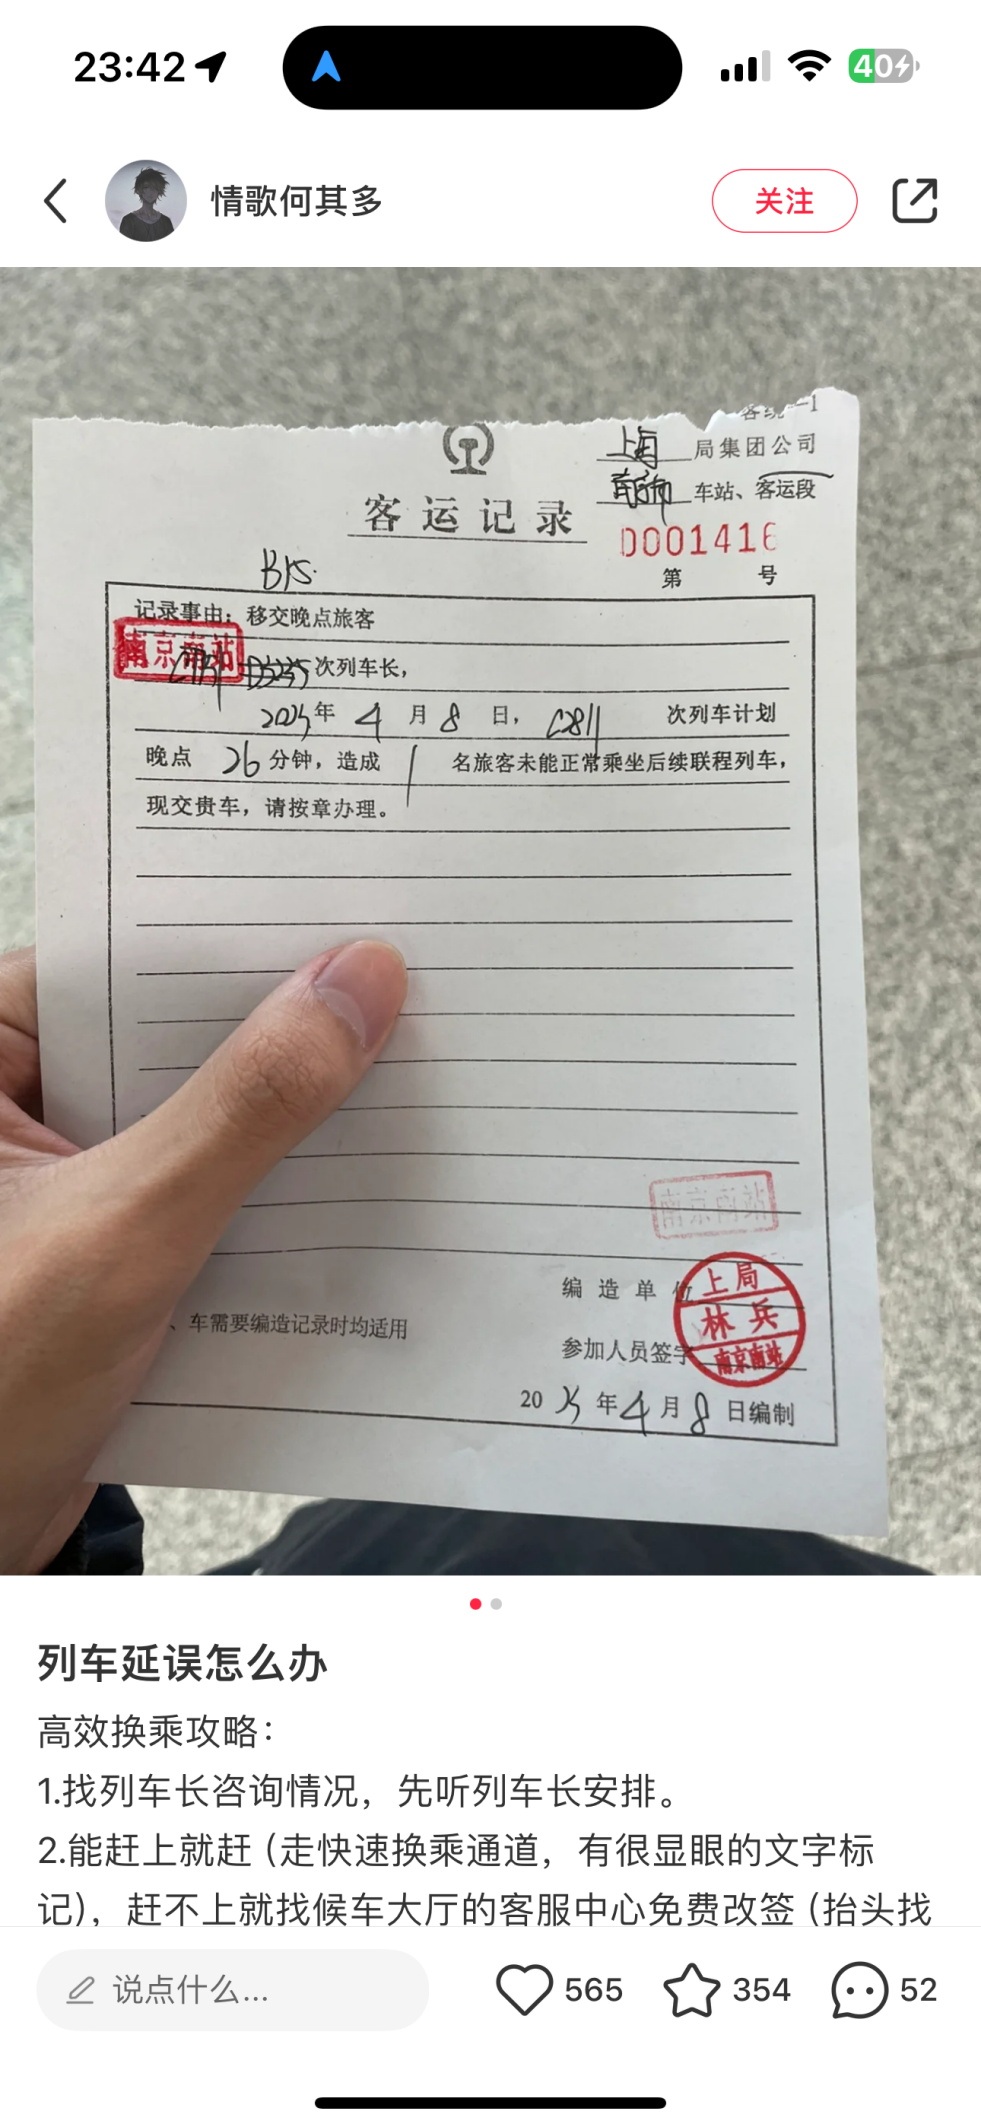 23:42
40
情歌何其多
关注
客统一1
上海局集团公司
车站、客运段
客运记录
0001416
第 号
B15
记录事由：移交晚点旅客
南京南站
D5235次列车长，
2025年4月8日，C2811次列车计划
晚点26分钟，造成1名旅客未能正常乘坐后续联程列车，
现交贵车，请按章办理。
南京南站
编造单位
上局
林兵
南京南站
、车需要编造记录时均适用
参加人员签字
2025年4月8日编制
列车延误怎么办
高效换乘攻略：
1.找列车长咨询情况，先听列车长安排。
2.能赶上就赶（走快速换乘通道，有很显眼的文字标
记），赶不上就找候车大厅的客服中心免费改签（抬头找
说点什么...
565
354
52